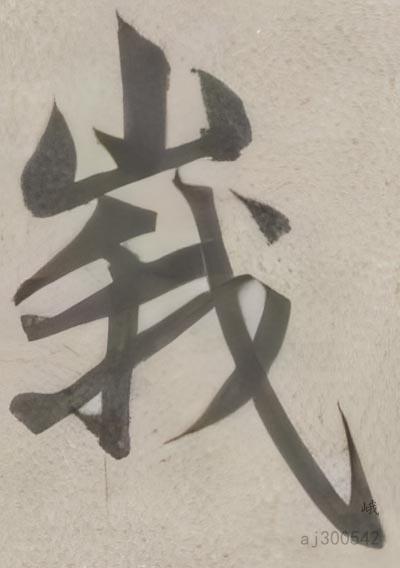 峩
峨
aj300542